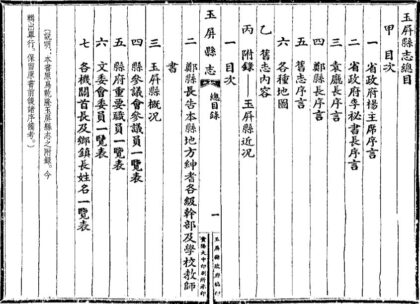 玉屏縣志總目
甲 目次
一 省政府楊主席序言
二 省政府李祕書長序言
三 袁廳長序言
四 鄭縣長序言
五 舊志序言
六 各種地圖
乙 舊志內容
丙 附錄——玉屏縣近況
一 目次
玉屏縣志
總目錄
一
玉屏縣政府編印
貴陽大中印刷所承印
二 鄭縣長告本縣地方紳耆各級幹部及學校教師
書
三 玉屏縣概況
四 縣參議會參議員一覽表
五 縣府重要職員一覽表
六 文委會委員一覽表
七 各機關首長及鄉鎮長姓名一覽表
（說明：本書原爲乾隆玉屏縣志之附錄。今
輯出單行。保留原書前後諸序備考。）